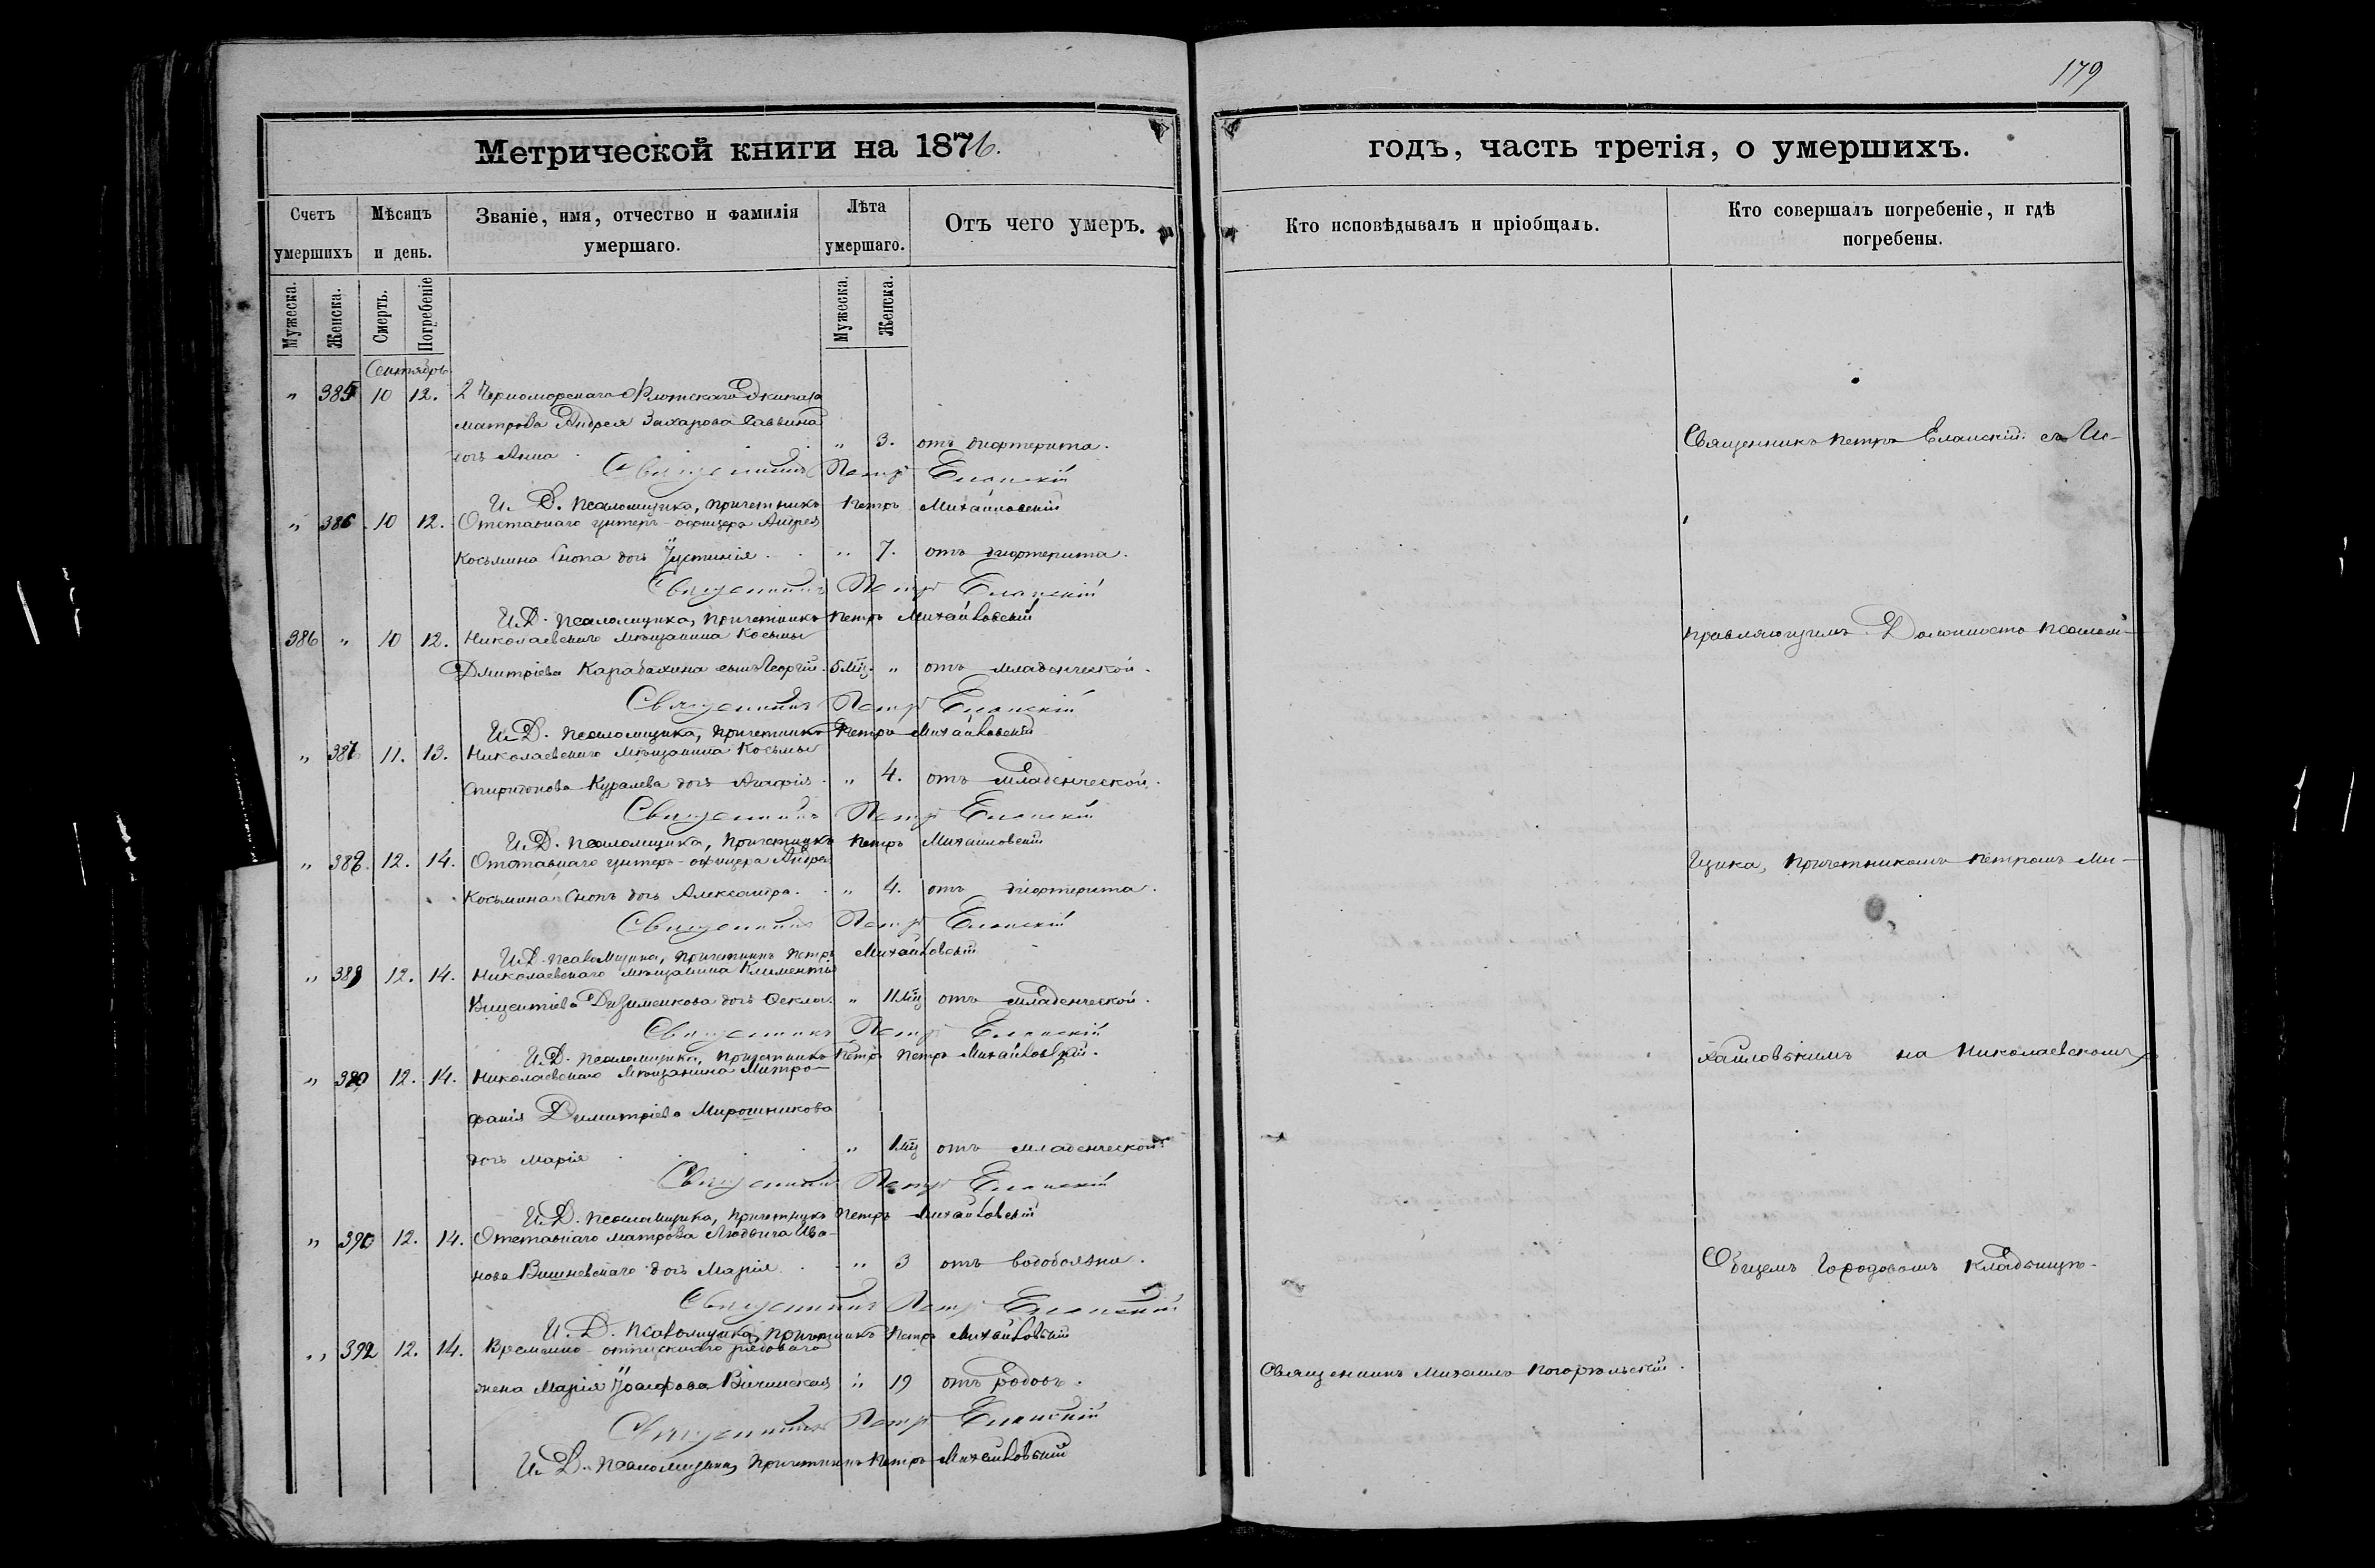 179
Метрической книги на 1876.
годъ, часть третія, о умершихъ.
Счетъ умершихъ
Мѣсяцъ и день.
Званіе, имя, отчество и фамилія умершаго.
Лѣта умершаго.
Отъ чего умеръ.
Кто исповѣдывалъ и пріобщалъ.
Кто совершалъ погребеніе, и гдѣ погребены.
Мужеска. Женска. Смерть. Погребеніе Мужеска. Женска.
Сентябрь
" 385 10 12. 2 Черноморскаго Флотскаго Экипажа
матроса Андрея Захарова Саввина
дочь Анна " 3. отъ дифтерита.
Священникъ Петръ Еланскій
И. Д. псаломщика, причетникъ Петръ Михайловскій
" 386 10 12. Отставнаго унтеръ-офицера Андрея
Косьмина Снопа дочь Іустинія " 7. отъ дифтерита.
Священникъ Петръ Еланскій
И. Д. псаломщика, причетникъ Петръ Михайловскій
386 " 10 12. Николаевскаго мѣщанина Косьмы
Дмитріева Карабахина сынъ Георгій. 5 мц. " отъ младенческой.
Священникъ Петръ Еланскій
И. Д. псаломщика, причетникъ Петръ Михайловскій
" 387 11. 13. Николаевскаго мѣщанина Косьмы
Спиридонова Куралева дочь Агафія " 4. отъ младенческой.
Священникъ Петръ Еланскій
И. Д. псаломщика, причетникъ Петръ Михайловскій
" 388. 12. 14. Отставнаго унтеръ-офицера Андрея
Косьмина Снопъ дочь Александра. " 4. отъ дифтерита.
Священникъ Петръ Еланскій
И. Д. псаломщика, причетникъ Петръ Михайловскій
" 389 12. 14. Николаевскаго мѣщанина Климентія
Викентіева дочь Ѳекла. " 11 мц отъ младенческой.
Священникъ Петръ Еланскій
И. Д. псаломщика, причетникъ Петръ Петръ Михайловскій.
" 390 12. 14. Николаевскаго мѣщанина Митро-
фанія Димитріева Мирошникова
дочь Марія " 1 мц отъ младенческой
Священникъ Петръ Еланскій
И. Д. псаломщика, причетникъ Петръ Михайловскій
" 390 12. 14. Отставнаго матроса Людвига Ива-
нова Вишневскаго дочь Марія " 3 отъ водобоязни.
Священникъ Петръ Еланскій
И. Д. псаломщика, причетникъ Петръ Михайловскій
" 392 12. 14. Временно-отпускнаго рядоваго
жена Марія Іоасафова " 19 отъ родовъ.
Священникъ Петръ Еланскій
И. Д. псаломщика, причетникъ Петръ Михайловскій
Священникъ Михаилъ Погорѣльскій.
Священникъ Петръ Еланскій съ Ис-
правляющимъ Должность псалом-
щика, причетникомъ Петромъ Ми-
хайловскимъ на Николаевскомъ
Общемъ Городовомъ кладбищѣ.